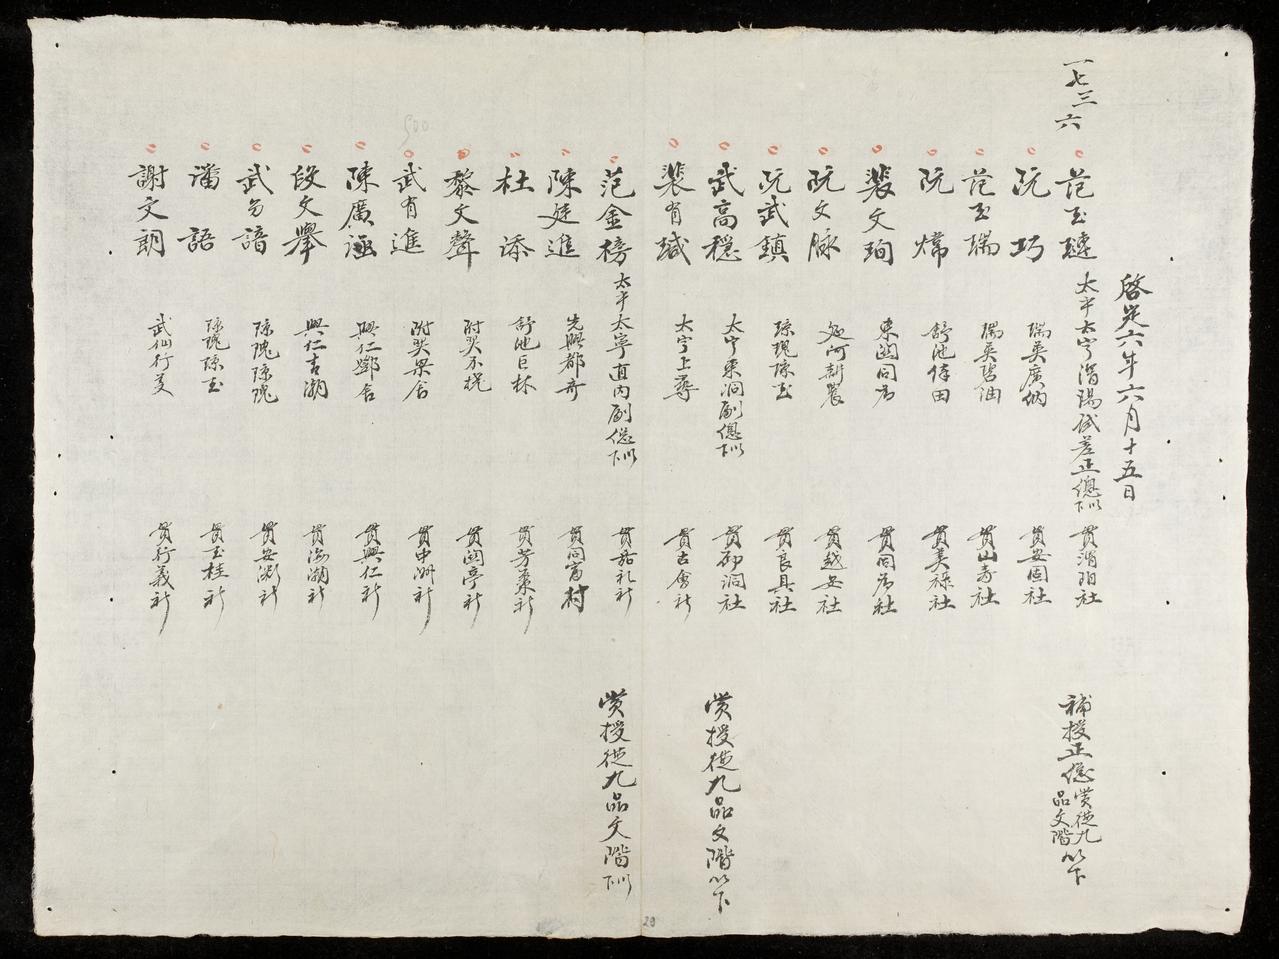 一七三六
啓定六年六月十五日
范玉璉 太平太寧渭陽試差正總 以下 貫渭陽社 補授正總賞從九品文階以下
阮巧 瑞英廣納 貫安固社
范玉瑞 瑞英碧油 貫山壽社
阮煒 舒池偉田 貫美祿社
裴文珣 東關同 貫同 社
阮文脉 延河新農 貫越安社
阮武鎮 琼瑰琼玉 貫良具社
武高穩 太寧東洞副總 以下 貫 洞社 賞授從九品文階以下
裴有 太寧上尊 貫古會社
范金榜 太平太寧直內副總以下 貫嘉礼社 賞授從九品文階以下
陳廷進 先興都奇 貫同富村
杜添 舒池巨林 貫芳棗社
黎文聲 附翼不撓 貫 亭社
武有進 附翼梁舍 貫中洲社
陳廣 興仁鄧舍 貫興仁社
段文擧 興仁吉潮 貫海潮社
武勻諳 琼瑰琼瑰 貫安 社
潘語 琼瑰琼玉 貫玉桂社
謝文朗 武仙行 貫行義社
500
29